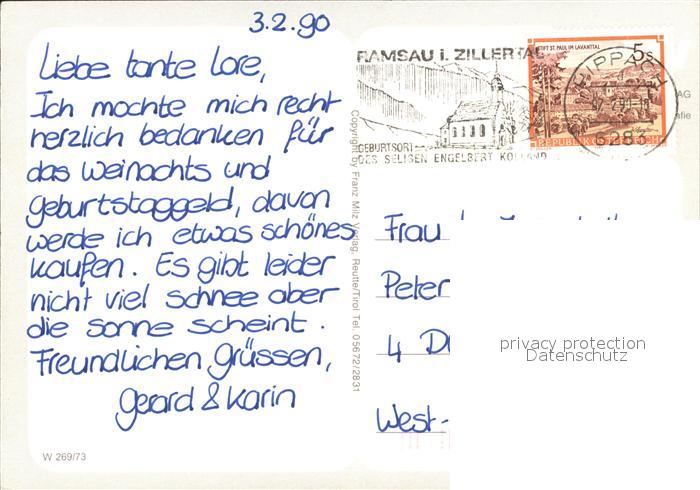 3.2.90
Liebe tante Lore,
Ich mochte mich recht
herzlich bedanken für
das Weinachts und
geburtstaggeld, davon
werde ich etwas schönes
kaufen. Es gibt leider
nicht viel schnee aber
die sonne scheint.
Freundlichen Grüssen,
Gerard & Karin
W 269/73
Copyright by Franz Milz Verlag, Reutte/Tirol Tel. 05672/2831
RAMSAU i. ZILLERTAL
GEBURTSORT
DES SELIGEN ENGELBERT KOLLAND
STIFT ST. PAUL IM LAVANTTAL
5s
REPUBLIK
AG
afie
Frau
Peter
4 D
West-
privacy protection
Datenschutz